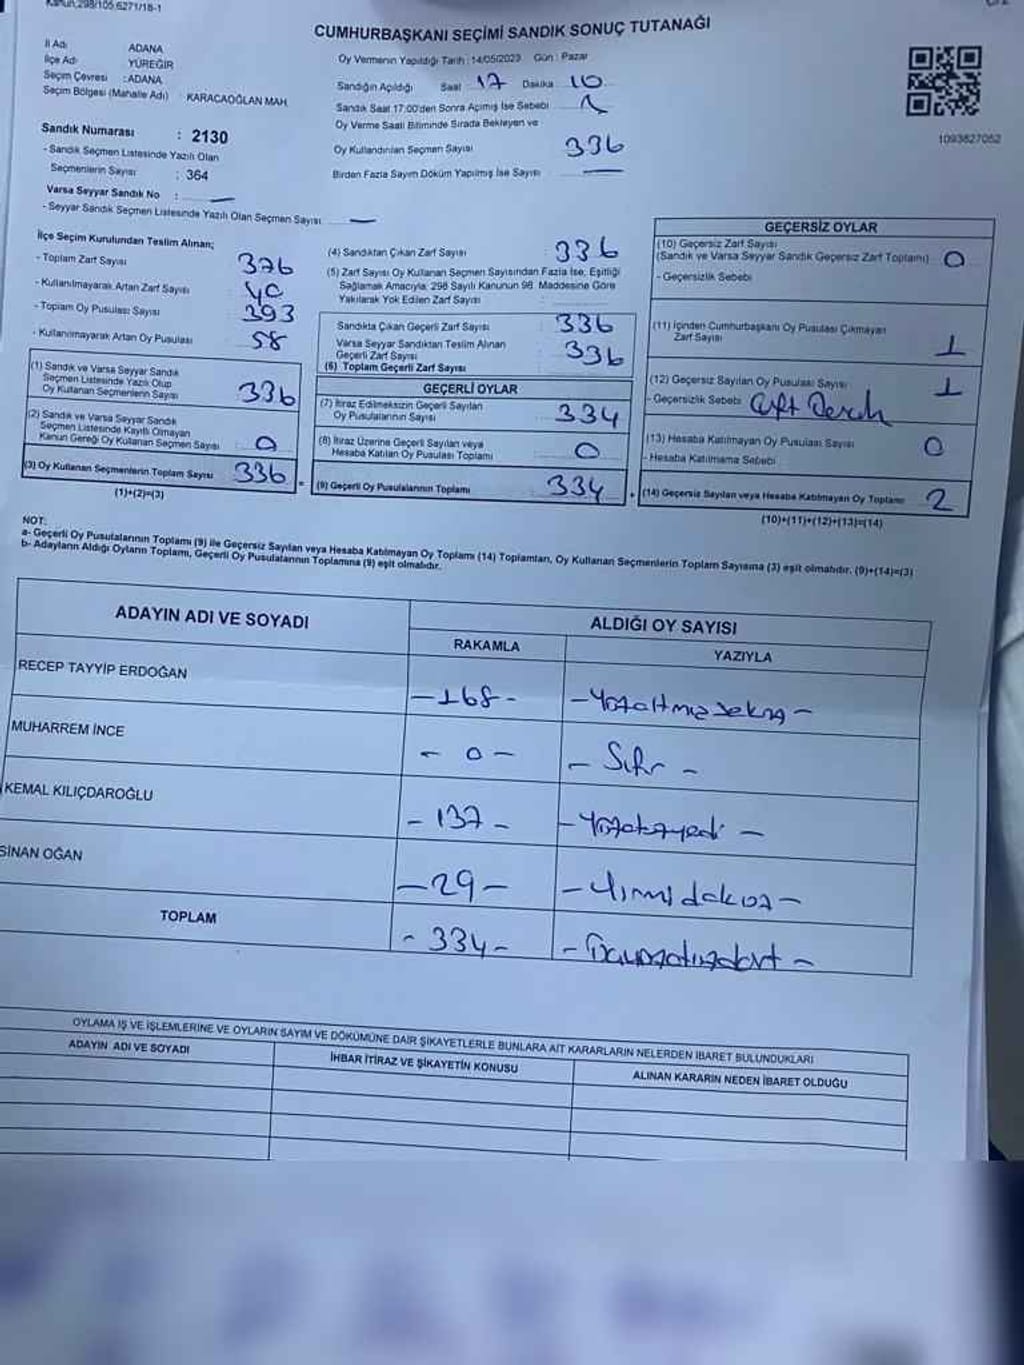 Kanun,298/105,6271/18-1
CUMHURBAŞKANI SEÇİMİ SANDIK SONUÇ TUTANAĞI
İl Adı ADANA
İlçe Adı YÜREĞİR
Seçim Çevresi :ADANA
Seçim Bölgesi (Mahalle Adı) : KARACAOĞLAN MAH.
Sandık Numarası : 2130
- Sandık Seçmen Listesinde Yazılı Olan
Seçmenlerin Sayısı : 364
Varsa Seyyar Sandık No : —
- Seyyar Sandık Seçmen Listesinde Yazılı Olan Seçmen Sayısı —
Oy Vermenin Yapıldığı Tarih :14/05/2023 Gün : Pazar
Sandığın Açıldığı Saat 17 Dakika 10
Sandık Saat 17:00'den Sonra Açımış İse Sebebi
Oy Verme Saati Bitiminde Sırada Bekleyen ve
Oy Kullandırılan Seçmen Sayısı 336
Birden Fazla Sayım Döküm Yapılmış İse Sayısı —
1093627052
İlçe Seçim Kurulundan Teslim Alınan;
- Toplam Zarf Sayısı 376
- Kullanılmayarak Artan Zarf Sayısı 40
- Toplam Oy Pusulası Sayısı 393
- Kullanılmayarak Artan Oy Pusulası 58
(1) Sandık ve Varsa Seyyar Sandık
Seçmen Listesinde Yazılı Olup
Oy Kullanan Seçmenlerin Sayısı 336
(2) Sandık ve Varsa Seyyar Sandık
Seçmen Listesinde Kayıtlı Olmayan
Kanun Gereği Oy Kullanan Seçmen Sayısı 0
(3) Oy Kullanan Seçmenlerin Toplam Sayısı 336
(1)+(2)=(3)
(4) Sandıktan Çıkan Zarf Sayısı 336
(5) Zarf Sayısı Oy Kullanan Seçmen Sayısından Fazla İse, Eşitliği
Sağlamak Amacıyla, 298 Sayılı Kanunun 98. Maddesine Göre
Yakılarak Yok Edilen Zarf Sayısı :
Sandıkta Çıkan Geçerli Zarf Sayısı 336
Varsa Seyyar Sandıktan Teslim Alınan
Geçerli Zarf Sayısı 336
(6) Toplam Geçerli Zarf Sayısı
GEÇERLİ OYLAR
(7) İtiraz Edilmeksizin Geçerli Sayılan
Oy Pusulalarının Sayısı 334
(8) İtiraz Üzerine Geçerli Sayılan veya
Hesaba Katılan Oy Pusulası Toplamı 0
(9) Geçerli Oy Pusulalarının Toplamı 334
GEÇERSİZ OYLAR
(10) Geçersiz Zarf Sayısı
(Sandık ve Varsa Seyyar Sandık Geçersiz Zarf Toplamı) 0
- Geçersizlik Sebebi
(11) İçinden Cumhurbaşkanı Oy Pusulası Çıkmayan
Zarf Sayısı 1
(12) Geçersiz Sayılan Oy Pusulası Sayısı 1
- Geçersizlik Sebebi
(13) Hesaba Katılmayan Oy Pusulası Sayısı 0
- Hesaba Katılmama Sebebi
(14) Geçersiz Sayılan veya Hesaba Katılmayan Oy Toplamı 2
(10)+(11)+(12)+(13)=(14)
NOT:
a- Geçerli Oy Pusulalarının Toplamı (9) ile Geçersiz Sayılan veya Hesaba Katılmayan Oy Toplamı (14) Toplamları, Oy Kullanan Seçmenlerin Toplam Sayısına (3) eşit olmalıdır. (9)+(14)=(3)
b- Adayların Aldığı Oyların Toplamı, Geçerli Oy Pusulalarının Toplamına (9) eşit olmalıdır.
ADAYIN ADI VE SOYADI ALDIĞI OY SAYISI
RAKAMLA YAZIYLA
RECEP TAYYİP ERDOĞAN -168- -Yüzaltmışsekiz-
MUHARREM İNCE - 0 - - Sıfır -
KEMAL KILIÇDAROĞLU - 137 - -Yüzotuzyedi -
SİNAN OĞAN -29- -Yirmidokuz-
TOPLAM - 334- - Üçyüzotuzdört -
OYLAMA İŞ VE İŞLEMLERİNE VE OYLARIN SAYIM VE DÖKÜMÜNE DAİR ŞİKAYETLERLE BUNLARA AİT KARARLARIN NELERDEN İBARET BULUNDUKLARI
ADAYIN ADI VE SOYADI İHBAR İTİRAZ VE ŞİKAYETİN KONUSU ALINAN KARARIN NEDEN İBARET OLDUĞU